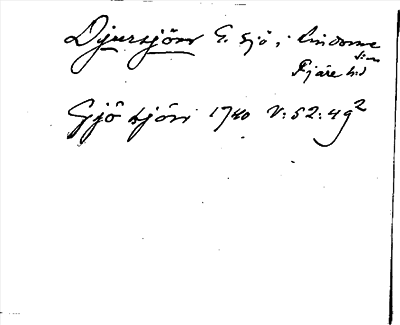 Djursjön G. sjö i Lindome
Sn
Fjäre hd
Gjö sjön 1740 V:52:49²